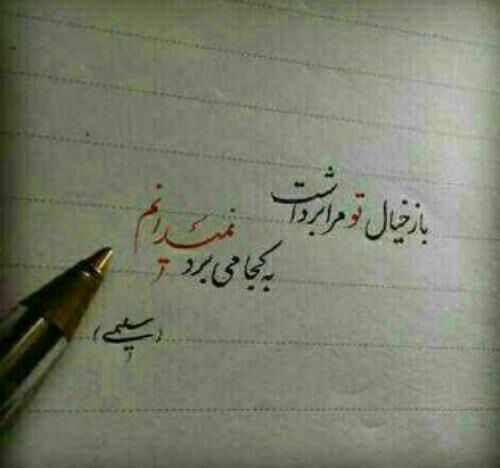 باز خیال تو مرا برداشت
نمیدانم
به کجا می برد
(سلیمی)